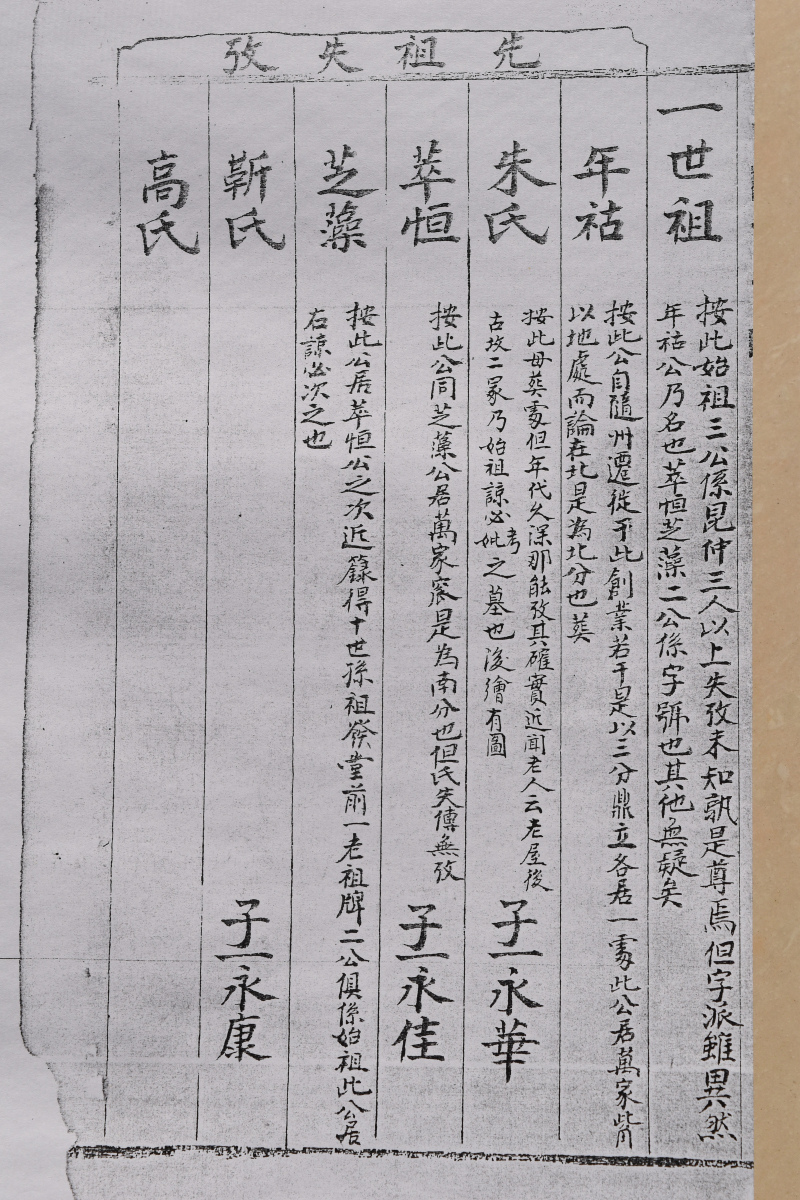 先祖失攷
一世祖
按此始祖三公係昆仲三人以上失攷未知孰是尊焉但字派雖異然
年祜公乃名也萃恒芝藻二公係字號也其他無疑矣
年祜
按此公自隨州遷徙于此創業若干是以三分鼎立各居一處此公居萬家
以地處而論在北是為北分也葬
朱氏
按此母葬處但年代久深那能攷其確實近聞老人云老屋後
古坟二冢乃始祖諒必考妣之墓也後繪有圖
子一永華
萃恒
按此公同芝藻公居萬家窯是為南分也但氏失傳無攷
子一永佳
芝藻
按此公居萃恒公之次近籙得十世孫祖發堂前一老祖牌二公俱係始祖此公居
右諒必次之也
靳氏
子一永康
高氏